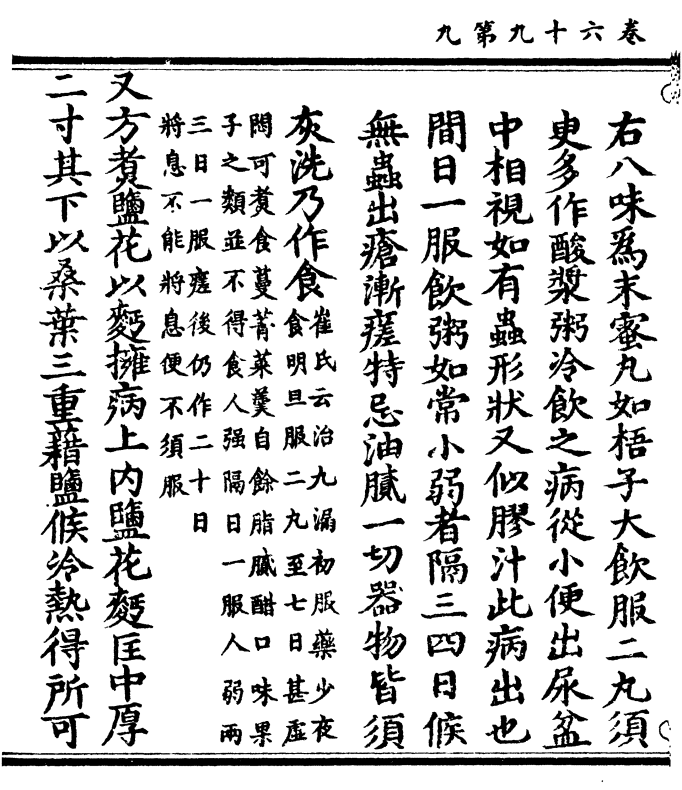 卷六十九第九
右八味爲末蜜丸如梧子大飲服二丸須
更多作酸漿粥冷飲之病從小便出尿盆
中相視如有蟲形狀又似膠汁此病出也
間日一服飲粥如常小弱者隔三四日候
無蟲出瘡漸瘥特忌油膩一切器物皆須
灰洗乃作食
崔氏云治九漏初服藥少夜
食明旦服二丸至七日甚虛
悶可煑食蔓菁菜羹自餘脂膩醋口味果
子之類並不得食人强隔日一服人弱兩
三日一服瘥後仍作二十日
將息不能將息便不須服
又方煑鹽花以麫擁病上内鹽花麫匡中厚
二寸其下以桑葉三重藉鹽候冷熱得所可